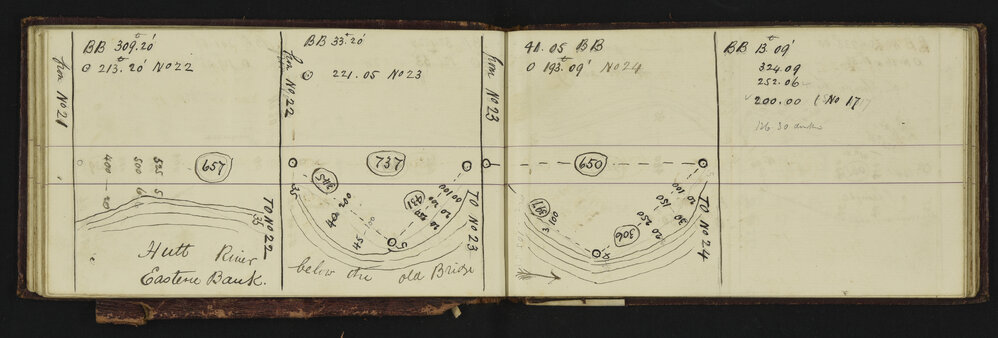 from No 21
BB 309.20'
⊙ 213.20' No 22
400 — 20
500 6
525 5
657
TO No 22
35
Hutt River
Eastern Bank.
from No 22
BB 33.20'
⊙ 221.05 No 23
737
35
345
40 200
45
431
100
TO No 23
below the old Bridge
from No 23
41.05 BB
⊙ 193.09' No 24
650
397
3 100
306
20 250
30 150
100
TO No 24
BB 13.09'
324.09
252.06
200.00 No 17